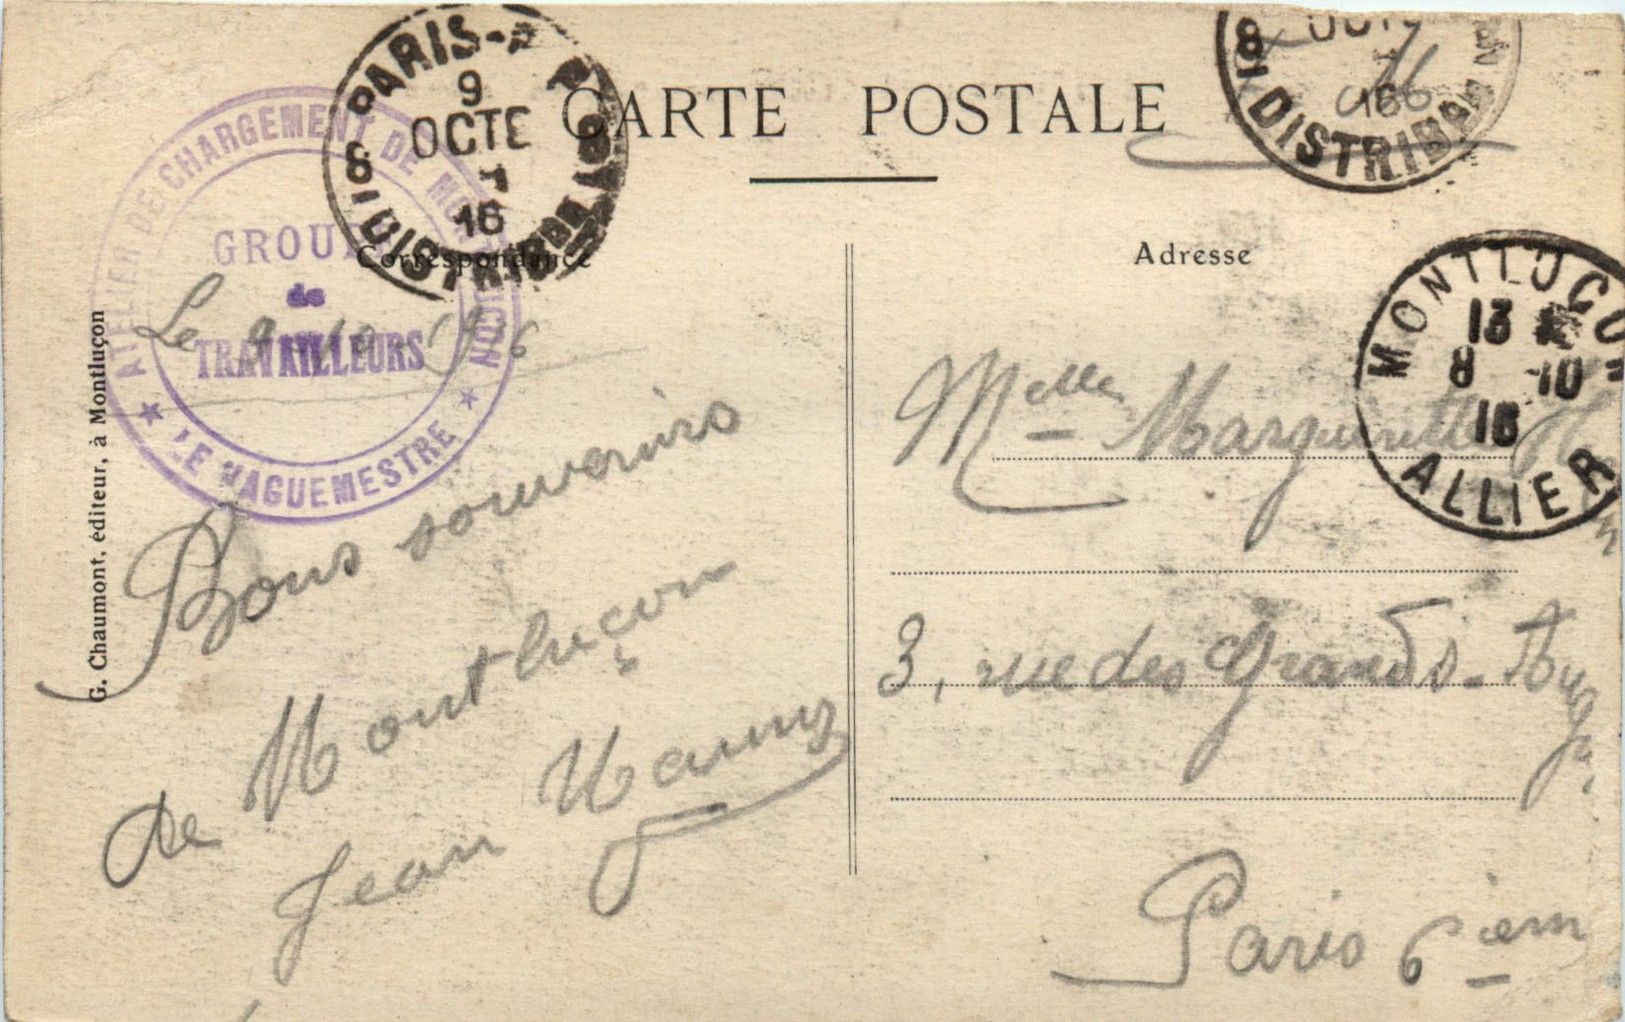 CARTE POSTALE
Correspondance
Adresse
G. Chaumont, éditeur, à Montluçon
ATELIER DE CHARGEMENT DE MONTLUÇON
GROUPE
de
TRAVAILLEURS
★ LE VAGUEMESTRE ★
PARIS
9
OCTE
16
8 DISTRIBON
8
OCT
16
DISTRIB
MONTLUÇON
13
8 -10
16
ALLIER
Le 9-10-1916
Bons souvenirs
de Montluçon
Jean
Melle Marguerite
3, rue des Grands-Aug
Paris 6ièm